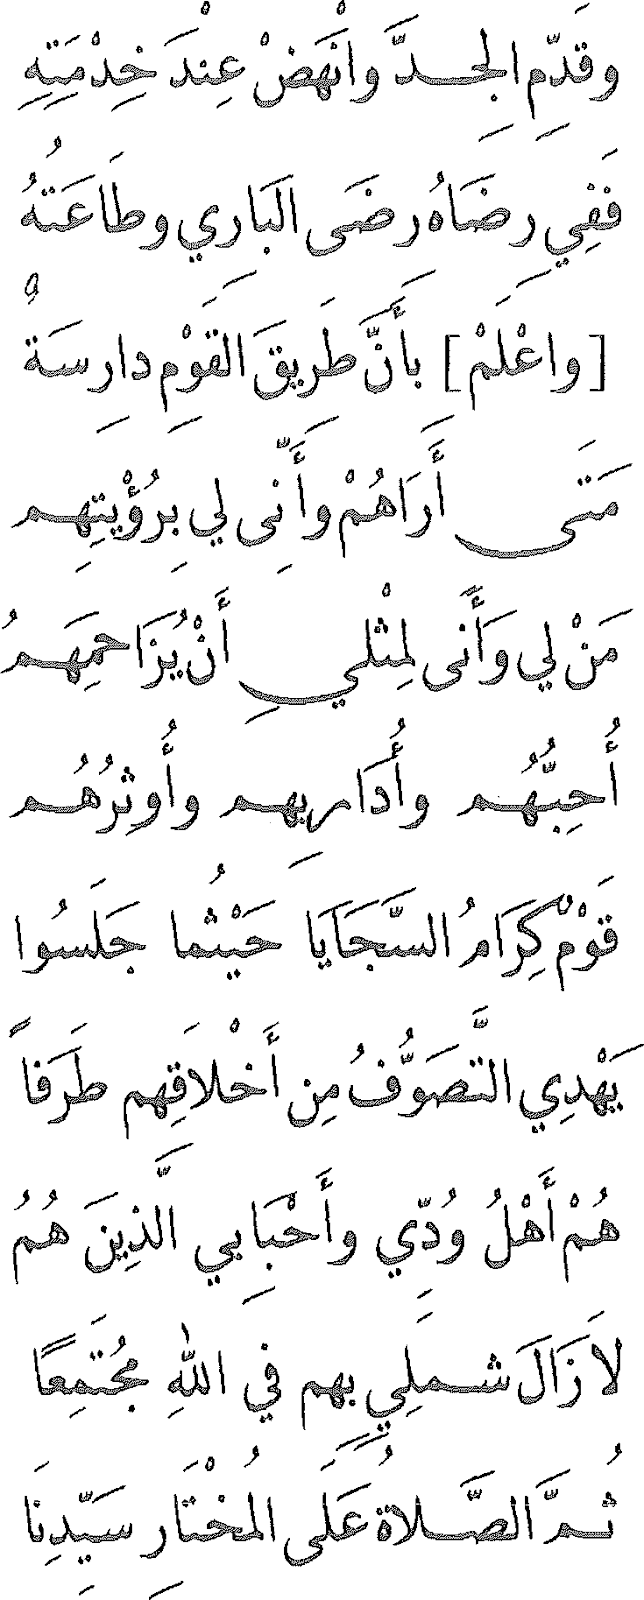 وَقَدِّمِ الجِدَّ وانْهَضْ عِنْدَ خِدْمَتِهِ
فَفِي رِضَاهُ رِضَى البَارِي وطَاعَتُهُ
[واعْلَمْ] بأَنَّ طَرِيقَ القَوْمِ دارِسَةٌ
مَتَى أَرَاهُمْ وأَنِّى لِي بِرُؤْيتِهِم
مَنْ لِي وَأَنَّى لِمِثْلِي أَنْ يُزَاحِمَهُمُ
أُحِبُّهُم وأُدَاريهم وأُوثِرُهُم
قَوْمٌ كِرَامُ السَّجَايَا حَيْثُما جَلَسُوا
يَهْدِي التَّصَوُّفُ مِن أَخْلاقِهم طَرَفاً
هُمْ أَهْلُ وُدِّي وأَحْبَابِي الَّذِينَ هُمُ
لاَ زَالَ شَملِي بهم في اللهِ مُجْتَمِعًا
ثُمَّ الصَّلاةُ عَلَى المُخْتَارِ سَيِّدِنَا